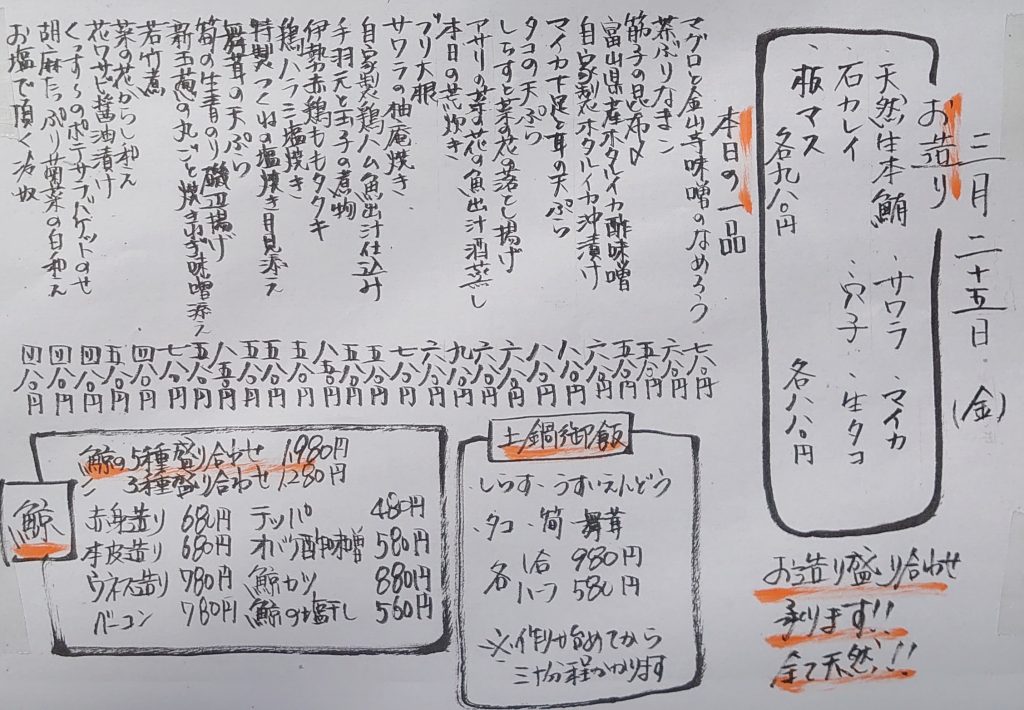 三月二十五日(金)
お造り
・天然生本鮪 ・サワラ ・マイカ
・石カレイ ・穴子 ・生タコ
・板マス
各九八〇円 各八八〇円
本日の一品
マグロと金山寺味噌のなめろう 七八〇円
茶ぶりなまこ 六八〇円
筋子の昆布〆 五八〇円
富山県産ホタルイカ酢味噌 五八〇円
自家製ホタルイカ沖漬け 六八〇円
マイカ下足、耳の天ぷら 八八〇円
タコの天ぷら 八八〇円
しらすと菜の花の落とし揚げ 六八〇円
アサリの菜の花の魚出汁酒蒸し 六八〇円
本日の荒炊き 九八〇円
ブリ大根 六八〇円
サワラの柚庵焼き 七八〇円
自家製鶏ハム魚出汁仕込み 五八〇円
手羽元と玉子の煮物 五八〇円
伊勢赤鶏ももタタキ 八五〇円
鶏ハラミ塩焼き 五八〇円
特製つくねの塩焼き月見添え 五八〇円
舞茸の天ぷら 五八〇円
筍の生青のり磯辺揚げ 八五〇円
新玉葱の丸ごと焼き 味噌添え 五八〇円
若竹煮 七八〇円
菜の花からし和え 四八〇円
花ワサビ醤油漬け 五八〇円
くっすーのポテサラバケットのせ 四八〇円
胡麻たっぷり菊菜の白和え 四八〇円
お塩で頂く冷奴 四八〇円
鯨
鯨の5種盛り合わせ 1,980円
〃 3種盛り合わせ 1,280円
赤身造り 680円 テッパ 480円
本皮造り 680円 オバケ酢味噌 580円
ウネス造り 780円 鯨カツ 880円
ベーコン 780円 鯨の塩干し 580円
土鍋御飯
・しらす・うすいえんどう
・タコ ・筍 ・舞茸
各 1合 980円
ハーフ 580円
※作り始めてから
三十分程かかります
お造り盛り合わせ
承ります!!
全て天然!!